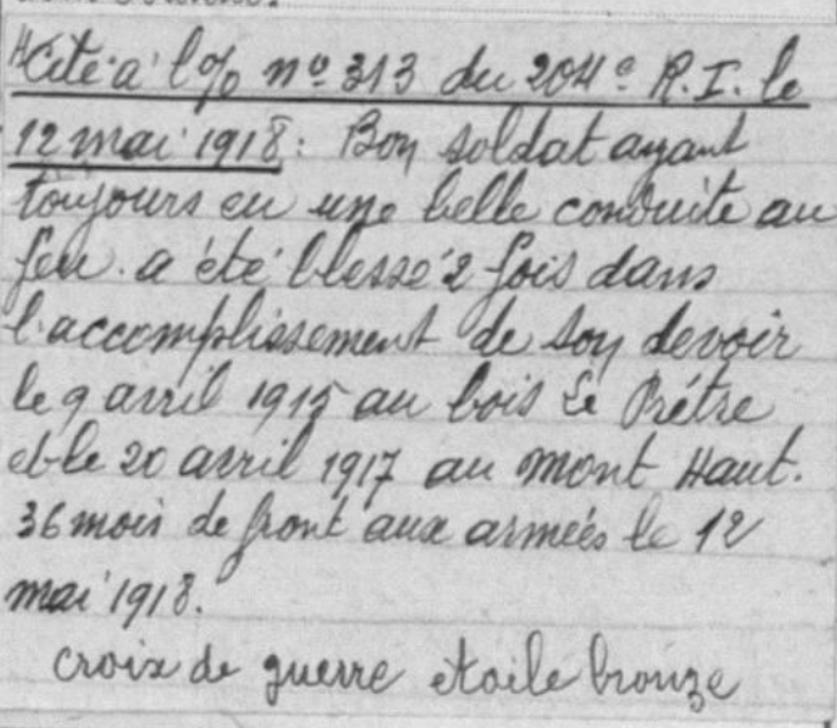 Cité à l'o/o n° 313 du 204e R.I. le
12 mai 1918 : Bon soldat ayant
toujours eu une belle conduite au
feu. a été blessé 2 fois dans
l'accomplissement de son devoir
le 9 avril 1915 au bois Le Prêtre
et le 20 avril 1917 au mont Haut.
36 mois de front aux armées le 12
mai 1918.
croix de guerre étoile bronze